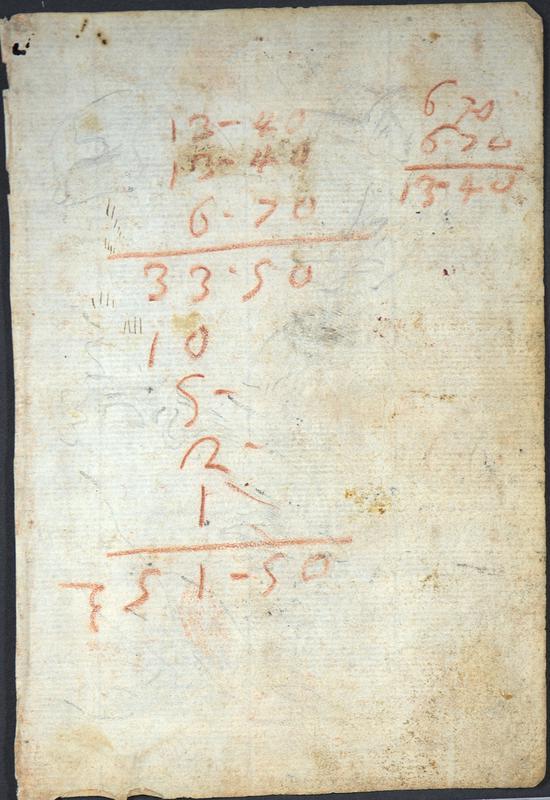 13-40
13-40
6-70
33-50
10
5-
2-
1
51-50
6.70
6.70
13-40